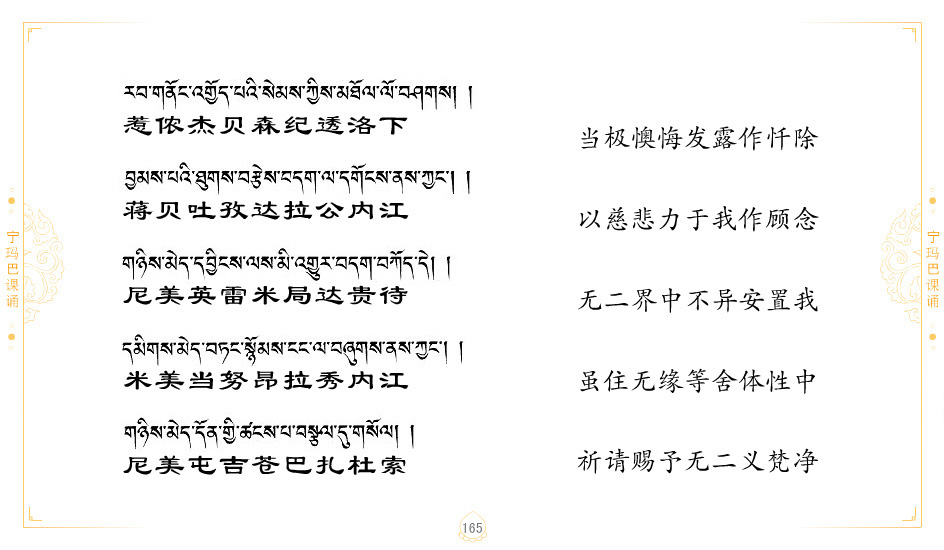 རབ་གནོང་འགྱོད་པའི་སེམས་ཀྱིས་མཐོལ་ལོ་བཤགས། །
惹侬杰贝森纪透洛下
当极懊悔发露作忏除
བྱམས་པའི་ཐུགས་བརྩེས་བདག་ལ་དགོངས་ནས་ཀྱང་། །
蒋贝吐孜达拉公内江
以慈悲力于我作顾念
གཉིས་མེད་དབྱིངས་ལས་མི་འགྱུར་བདག་བཀོད་དེ། །
尼美英雷米局达贵待
无二界中不异安置我
དམིགས་མེད་བཏང་སྙོམས་ངང་ལ་བཞུགས་ནས་ཀྱང་། །
米美当努昂拉秀内江
虽住无缘等舍体性中
གཉིས་མེད་དོན་གྱི་ཚངས་པ་བསྩལ་དུ་གསོལ། །
尼美屯吉苍巴扎杜索
祈请赐予无二义梵净
宁玛巴课诵
宁玛巴课诵
165